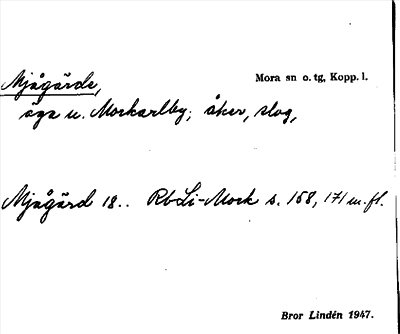 Mjågärde,
Mora sn o. tg, Kopp. l.
äga u. Morkarlby; åker, slog,
Mjågärd 18.. RbLi-Mork s. 158, 171 m.fl.
Bror Lindén 1947.